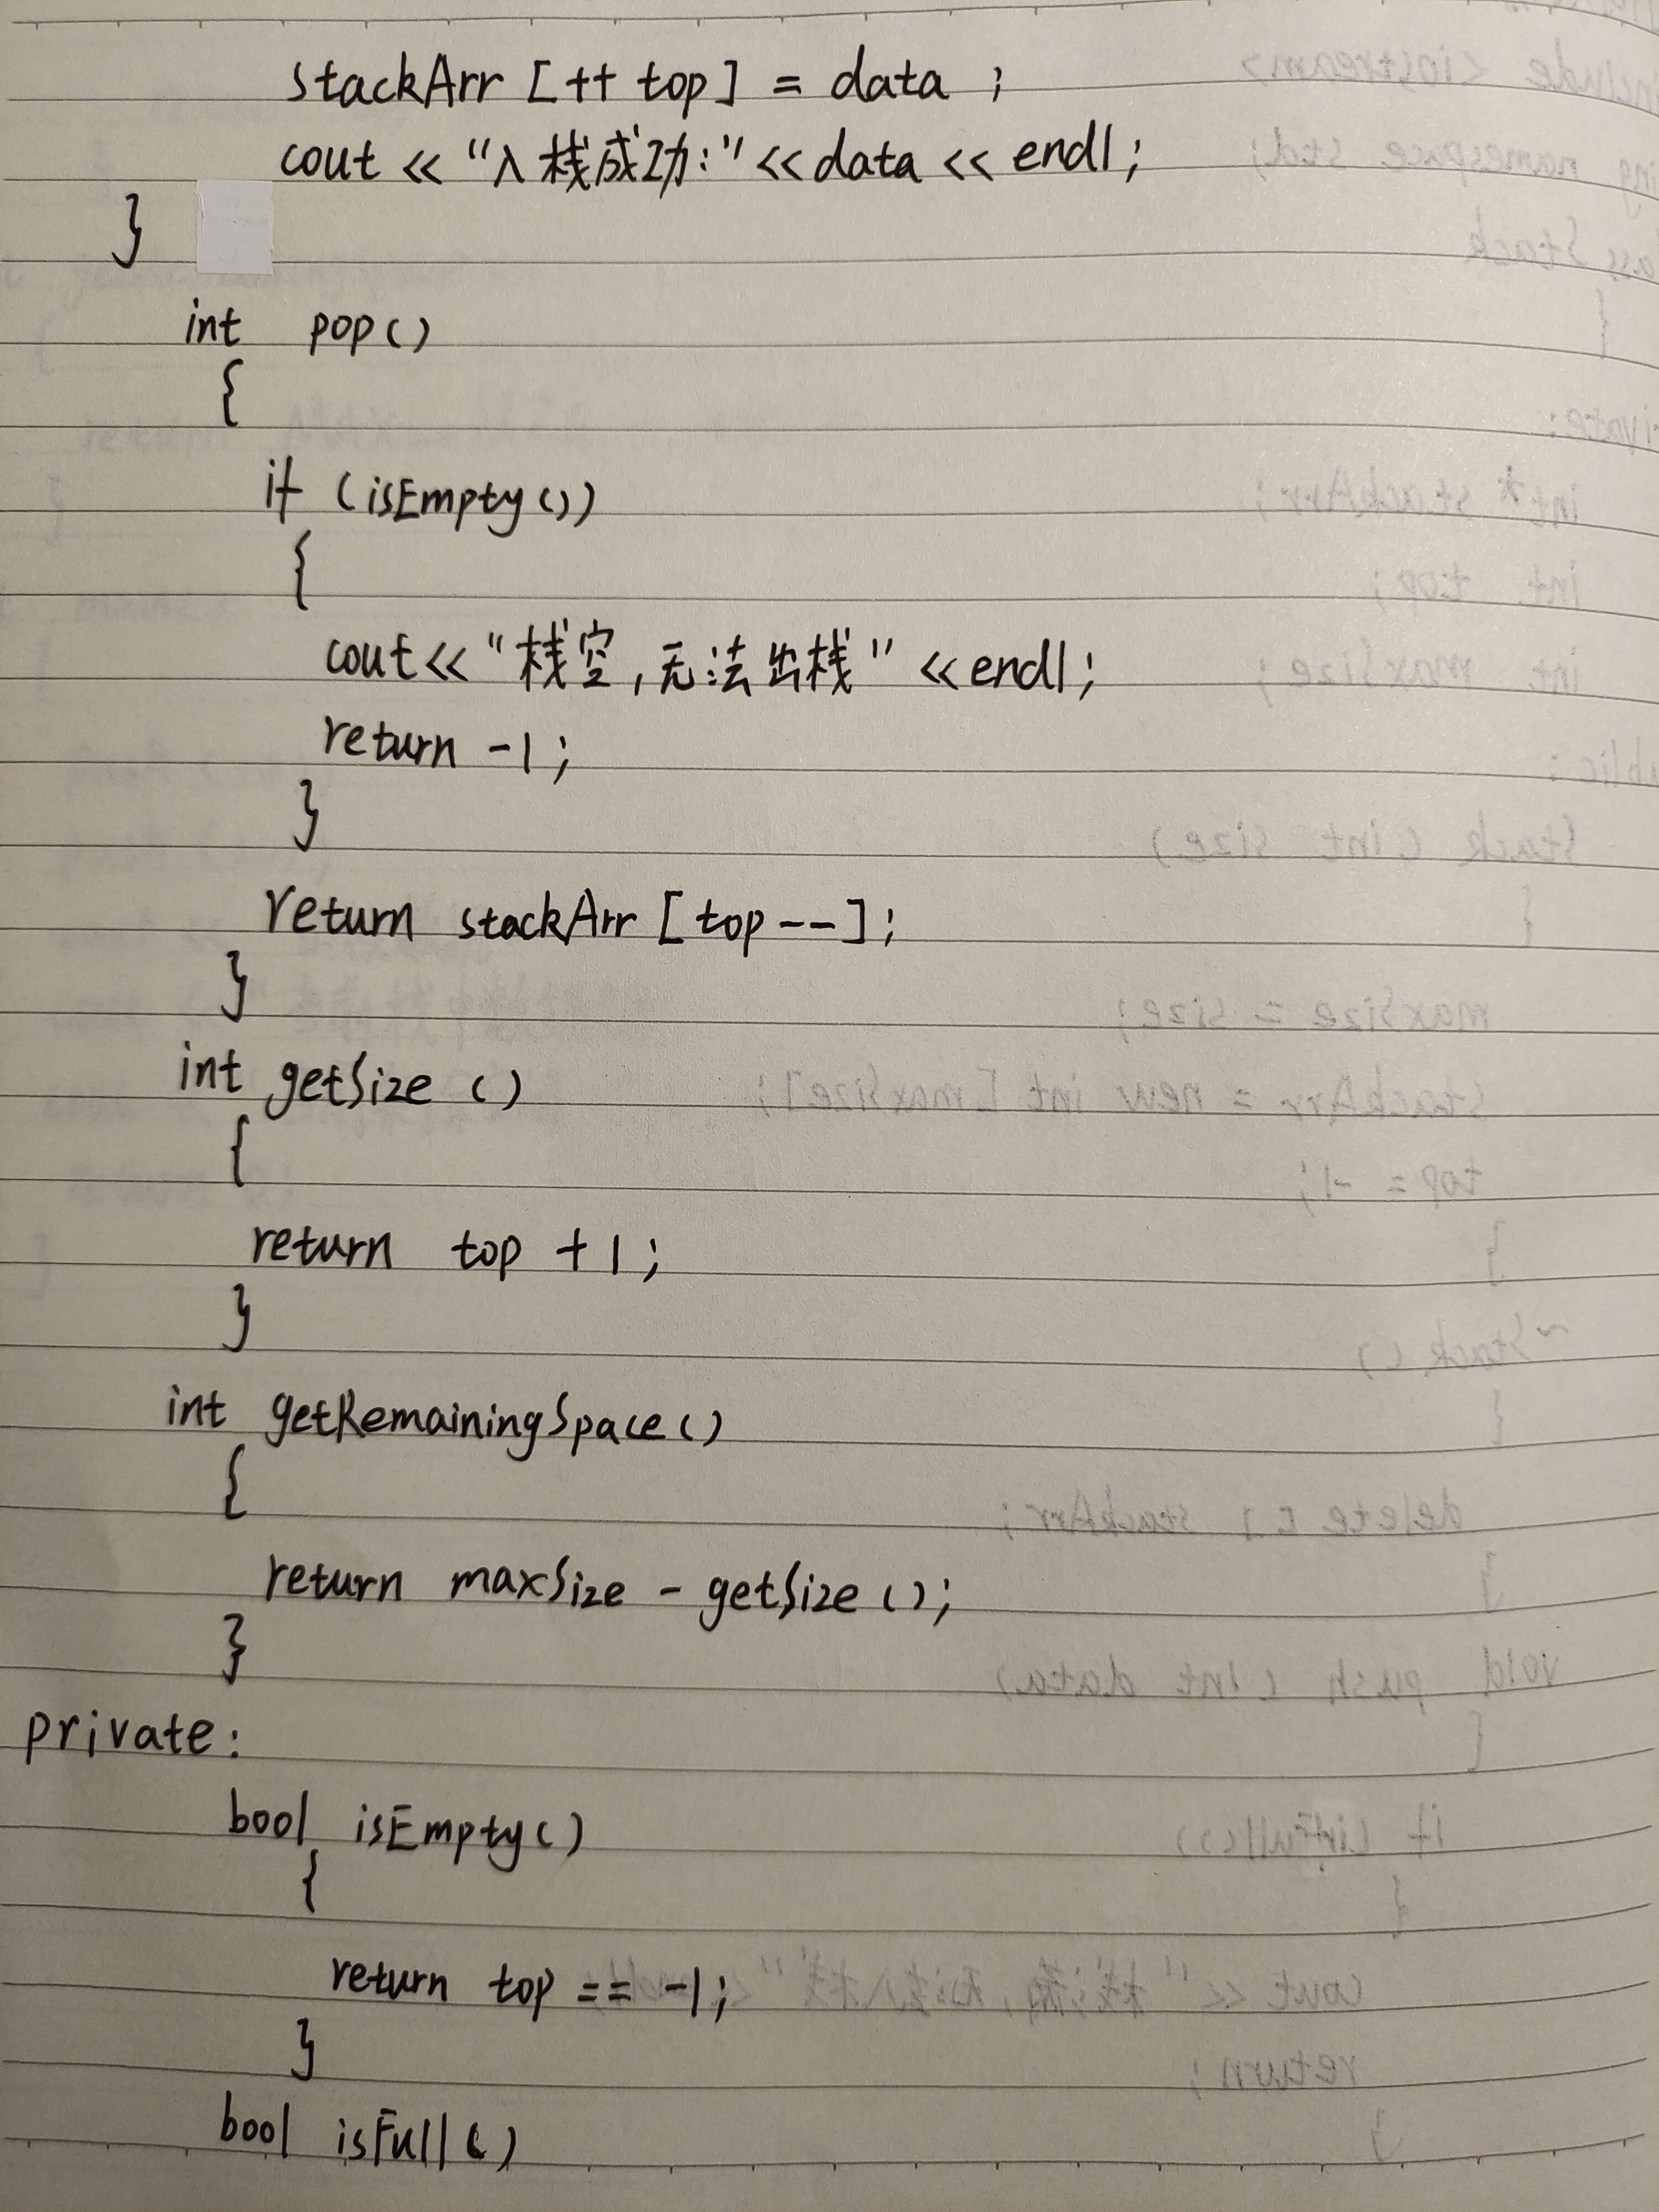 stackArr [++ top] = data ;
cout << "入栈成功:" << data << endl ;
}
int pop()
{
if (isEmpty())
{
cout << "栈空,无法出栈" << endl ;
return -1 ;
}
return stackArr [top--] ;
}
int getSize ()
{
return top +1 ;
}
int getRemainingSpace()
{
return maxSize - getSize () ;
}
private :
bool isEmpty()
{
return top == -1 ;
}
bool isFull()